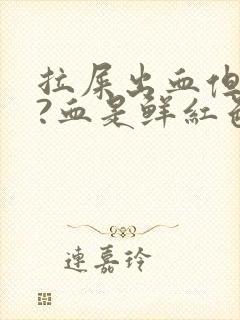 拉屎出血但
?血是鲜红色
连嘉玲